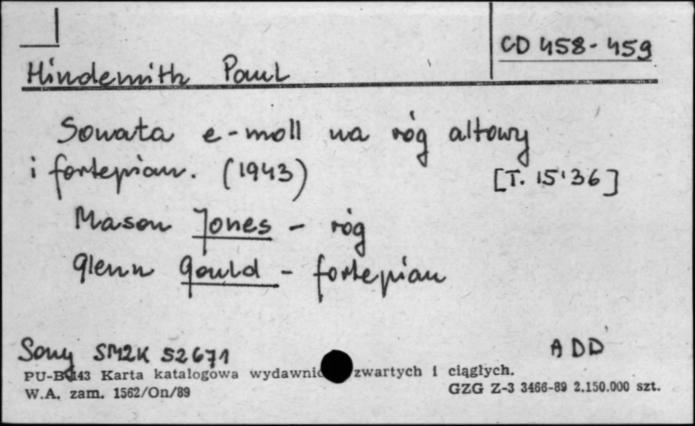 CD 458-459
Hindemith Paul
Sonata e-moll na róg altowy
i fortepian. (1943) [T. 15'36]
Mason Jones - róg
Glenn Gould - fortepian
Sony SM2K 52671 ADD
PU-B 143 Karta katalogowa wydawnic zwartych i ciągłych.
W.A. zam. 1562/On/89 GZG Z-3 3466-89 2.150.000 szt.